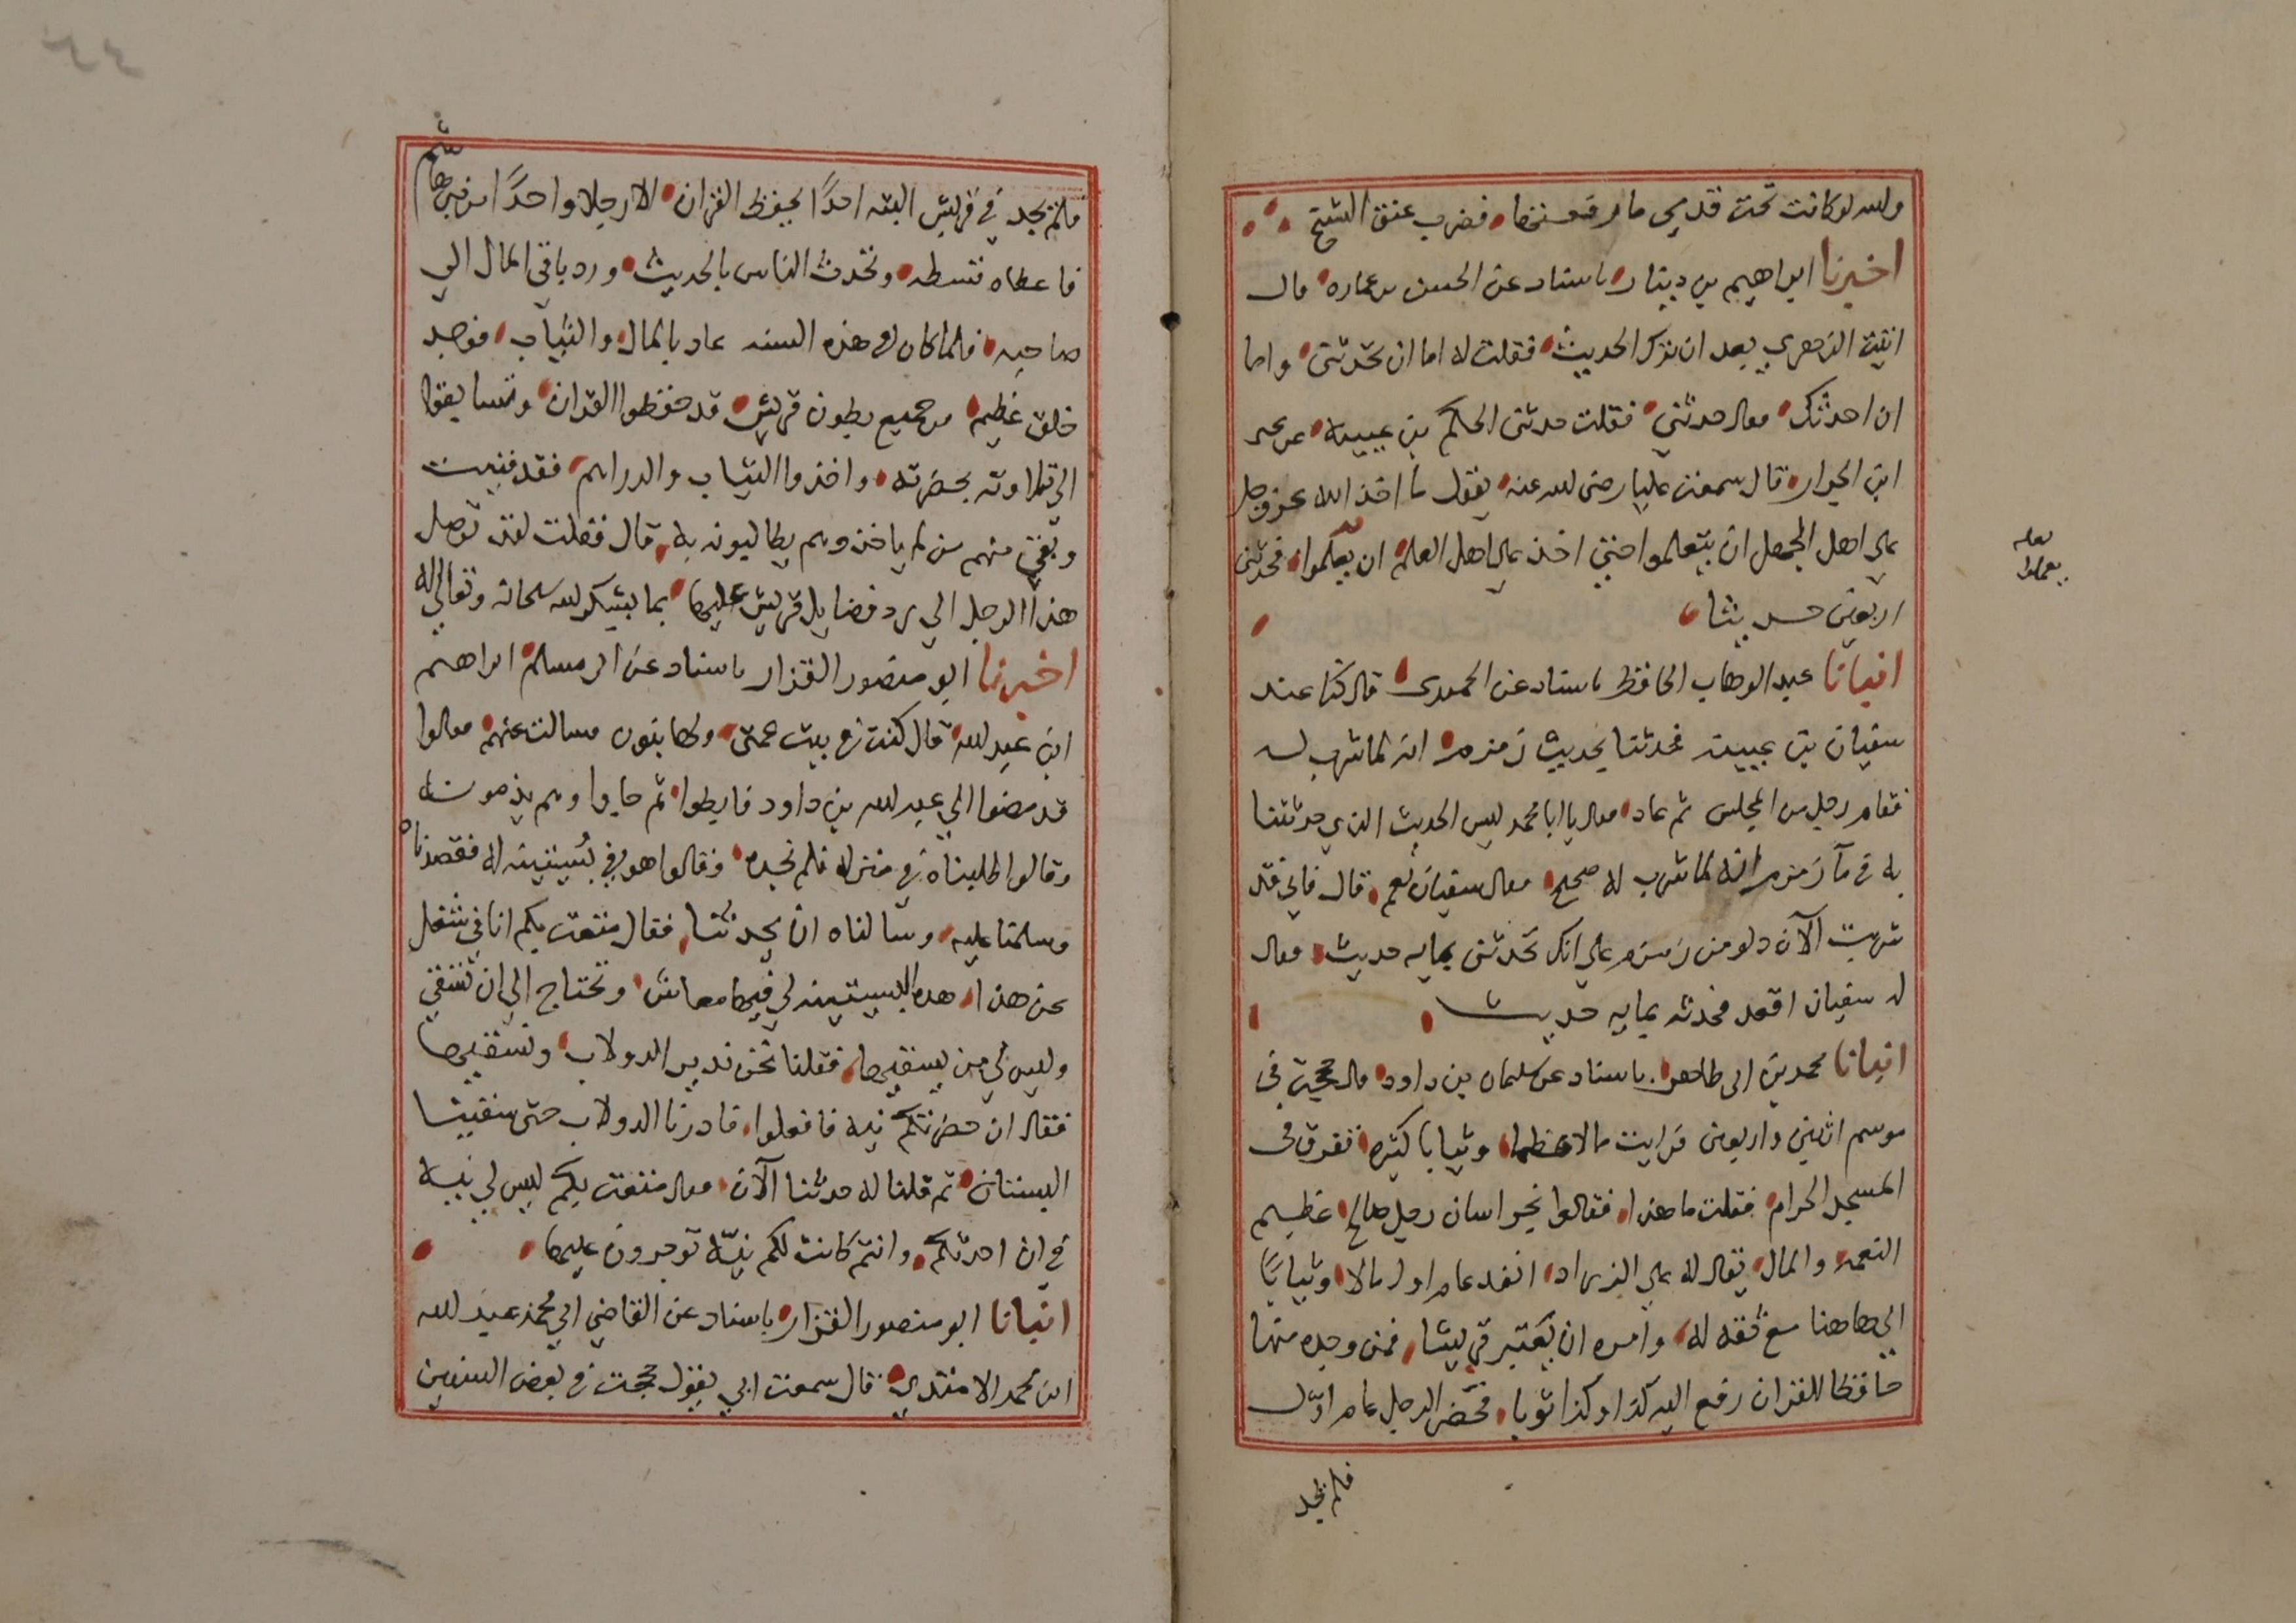 والله لو كانت تحت قدمي ما رفعتها فضرب عنق الشيخ
اخبرنا ابراهيم بن دينار باسناد عن الحسن بن عماره قال
اتيت الزهري بعد ان ترك الحديث فقلت له اما ان تحدثني واما
ان احدثك فقال حدثني فقلت حدثني الحكم بن عيينه عن يحيى
ابن الجزار قال سمعت عليا رضى لله عنه يقول ما اخذ الله عز وجل
على اهل الجهل ان يتعلموا حتى اخذ على اهل العلم ان يعلموا فحدثني
اربعين حديثا
انبانا عبد الوهاب الحافظ باسناد عن الحميدى قال كنا عند
سفيان بن عيينه فحدثنا بحديث زمزم انه لما شرب له
فقام رجل من المجلس ثم عاد فقال يا ابا محمد ليس الحديث الذي حدثتنا
به في مآ زمزم انه لما شرب له صحيح فقال سفيان نعم قال فاني قد
شربت الآن دلو من زمزم على انك تحدثني بمايه حديث فقال
له سفيان اقعد فحدثه بمايه حديث
انبانا محمد بن ابى طاهر باسناد عن سليمان بن داود قال حججت في
موسم اثنين واربعين فرايت مالا عظيما وثيابا كثيره تفرق في
المسجد الحرام فقلت ما هذا فقالوا بخراسان رجل صالح عظيم
النعمه والمال يقال له على الزراد انفد عام اول مالا وثيابًا
الي هاهنا مع ثقه له وامره ان يعتبر قريشا فمن وجده منها
حافظا للقران رفع اليه كذا وكذا ثوبا فحضر الرجل عام اول
فلم يجد
لعله
يعملوا
فلم يجد في قريش البته احدًا يحفظ القران الا رجلا واحدًا من بني هاشم
فاعطاه قسطه وتحدث الناس بالحديث ورد باقي المال الي
صاحبه فلما كان في هذه السنه عاد بالمال والثياب فوجد
خلق عظيم من جميع بطون قريش قد حفظوا القران وتسابقوا
الى تلاوته بحضرته واخذوا الثياب والدراهم فقد فنيت
وبقي منهم من لم ياخذ وهم يطالبونه به قال فقلت لقد توصل
هذا الرجل الي رد فضايل قريش عليها بما يشكره لله سبحانه وتعالي له
اخبرنا ابو منصور القزاز باسناد عن ابى مسلم ابراهيم
ابن عبد لله قال كنت في بيت عمتى ولها بنون فسالت عنهم فقالوا
قد مضوا الي عبد لله بن داود فابطوا ثم جاوا وهم يذمونه
وقالوا طلبناه في منزله فلم نجده وقالوا هو في بُسيتينه له فقصدناه
وسلمنا عليه وسالناه ان يحدثنا فقال متعت بكم انا في شغل
عن هذا هذه البسيتينه لي فيها معاش وتحتاج الي ان تسقي
وليس لي من يسقيها فقلنا نحن ندير الدولاب ونسقيها
فقال ان حضرتكم نيه فافعلوا فادرنا الدولاب حتى سقينا
البستان ثم قلنا له حدثنا الآن فقال متعت بكم ليس لي نيه
في ان احدثكم وانتم كانت لكم نيّه توجرون عليها
انبانا ابو منصور القزاز باسناد عن القاضي ابي محمد عبد لله
ابن محمد الاسدي قال سمعت ابي يقول حججت في بعض السنين